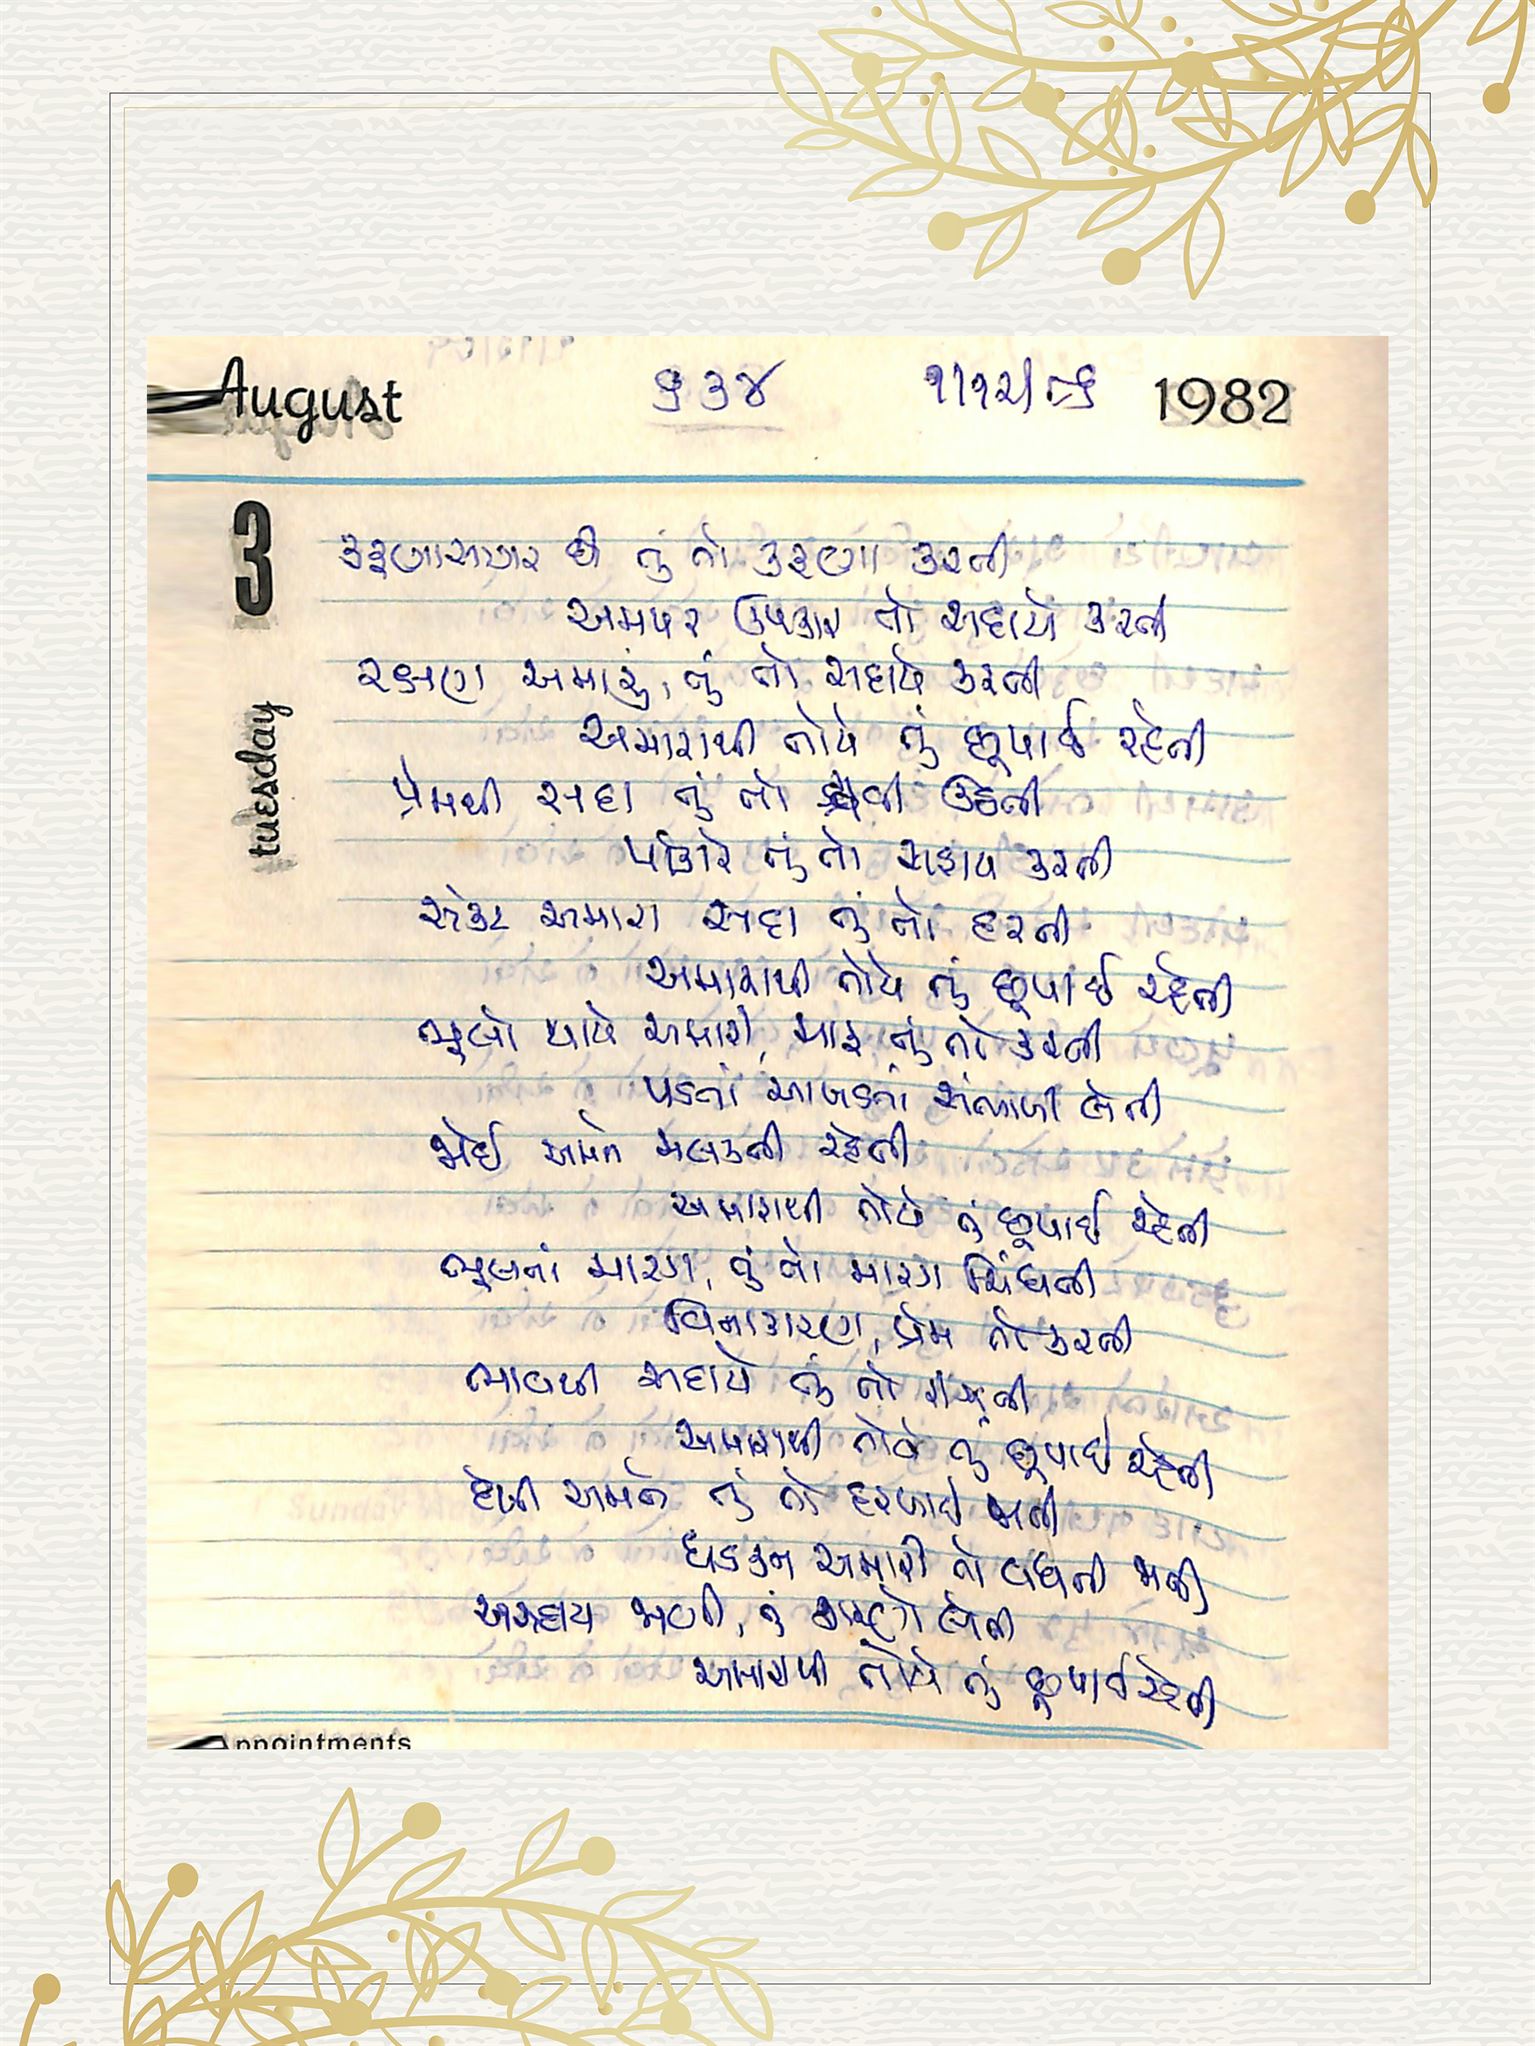 August ૬૩૪ 1982
3
tuesday
કરૂણાસાગર છે તું તો કરૂણા કરતી
અમપર ઉપકાર તો સદાયે કરતી
રક્ષણ અમારું, તું તો સદાયે કરતી
અમારાથી તોયે તું છૂપાઈ રહેતી
પ્રેમથી સદા તું તો ઉઠતી
પોકારે તું તો સહાય કરતી
સંકટ અમારા સદા તું તો હરતી
અમારાથી તોયે તું છૂપાઈ રહેતી
ભૂલો થાયે અમારી, માફ તું તો કરતી
પડતાં આખડતાં સંભાળી લેતી
જોઈ અમને મલકતી રહેતી
અમારાથી તોયે તું છૂપાઈ રહેતી
ભૂલતાં મારગ, તું તો મારગ ચિંધતી
વિનાકારણ, પ્રેમ તો કરતી
ભાવથી સદાયે તું તો રીઝતી
અમારાથી તોયે તું છૂપાઈ રહેતી
દેખી અમને તું તો હરખાઈ જાતી
ધડકન અમારી તો વધતી જાતી
અસહાય જાણી, તું શરણે લેતી
અમારાથી તોયે તું છૂપાઈ રહેતી
Appointments